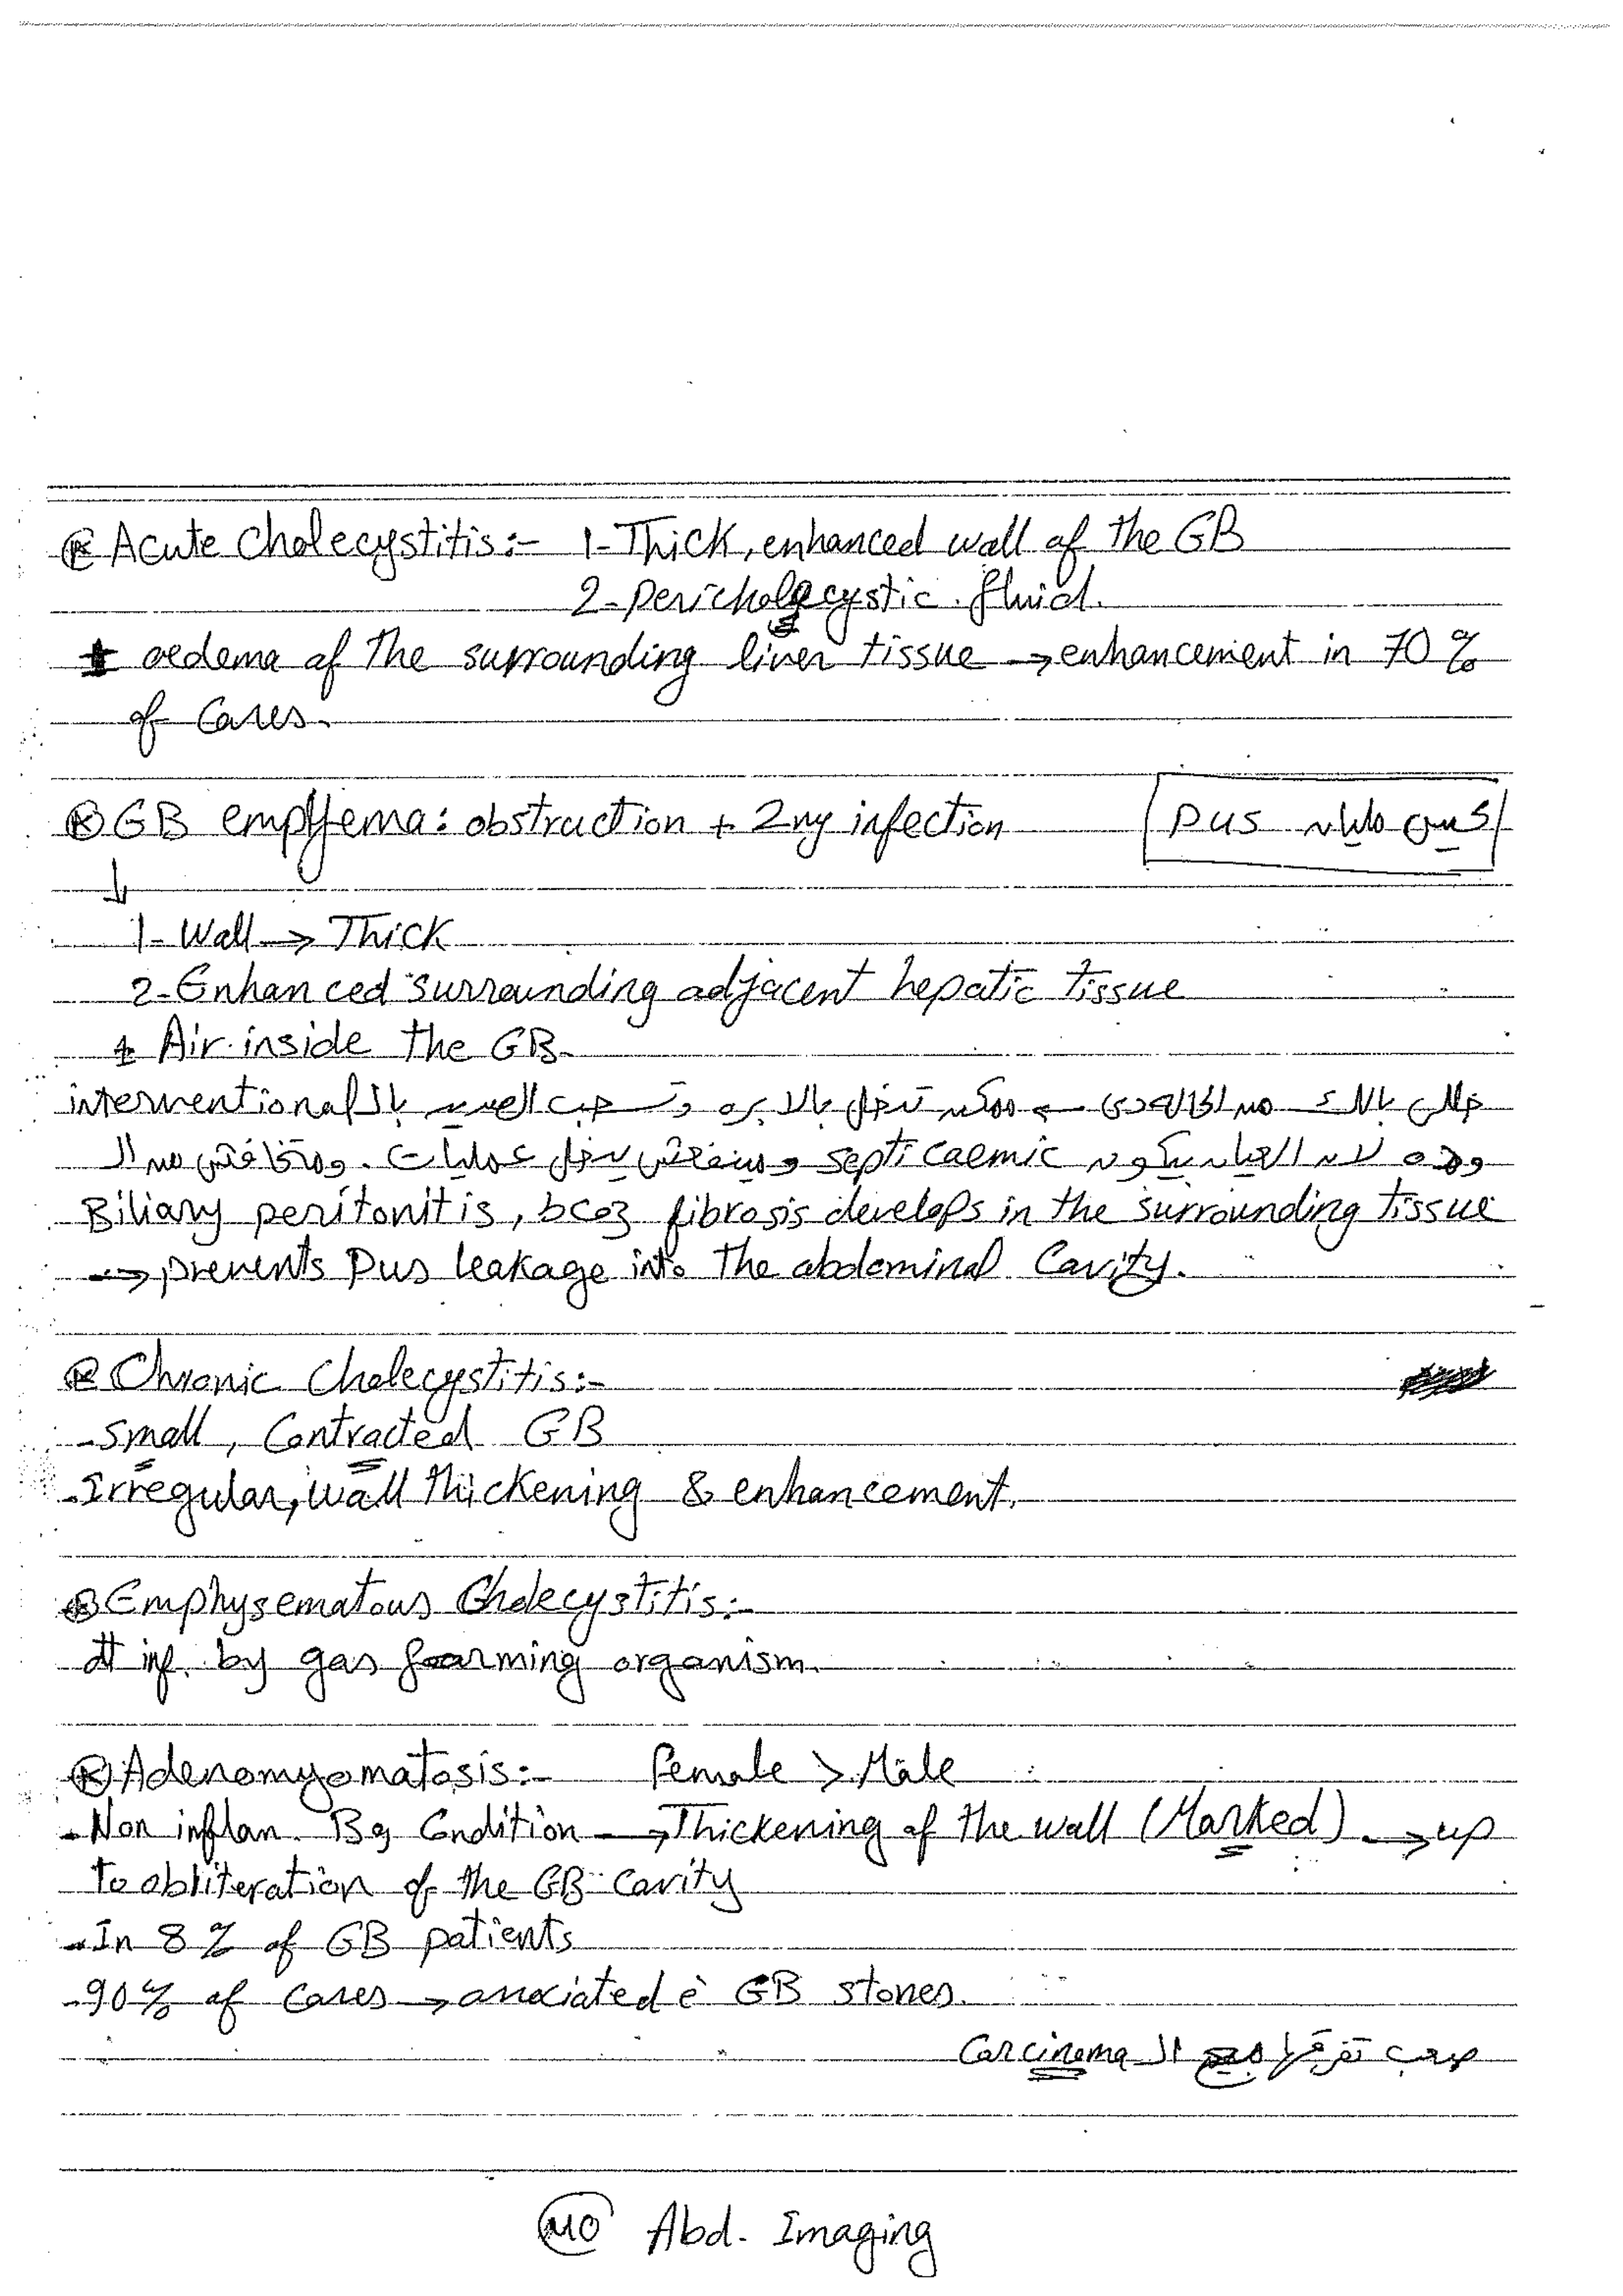 Acute Cholecystitis:- 1-Thick, enhanced wall of the GB
2-pericholecystic fluid.
± oedema of the surrounding liver tissue → enhancement in 70 %
of cases.
GB empyema: obstruction + 2ry infection
كيس مليان pus
↓
1- Wall → Thick
2- Enhanced surrounding adjacent hepatic tissue
± Air inside the GB.
خللي بالك من الحالة دي → ممكن تدخل بالابره وتسحب الصديد بالـ interventional
وده لان العيان بيكون septicaemic ومينفعش يدخل عمليات. ومتخافش من الـ
Biliary peritonitis, bcoz fibrosis develops in the surrounding tissue
→ prevents pus leakage into the abdominal cavity.
Chronic Cholecystitis:-
- Small, Contracted GB
- Irregular, wall thickening & enhancement.
Emphysematous Cholecystitis:-
dt inf. by gas forming organism.
Adenomyomatosis:- Female > Male
- Non inflam. Bg Condition → Thickening of the wall (Marked) → up
to obliteration of the GB cavity
- In 8 % of GB patients
- 90% of cases → associated è GB stones.
صعب تفرقها من الـ Carcinoma
Abd. Imaging